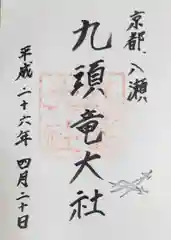 京都・八瀬
九頭竜大社
平成二十六年四月二十日